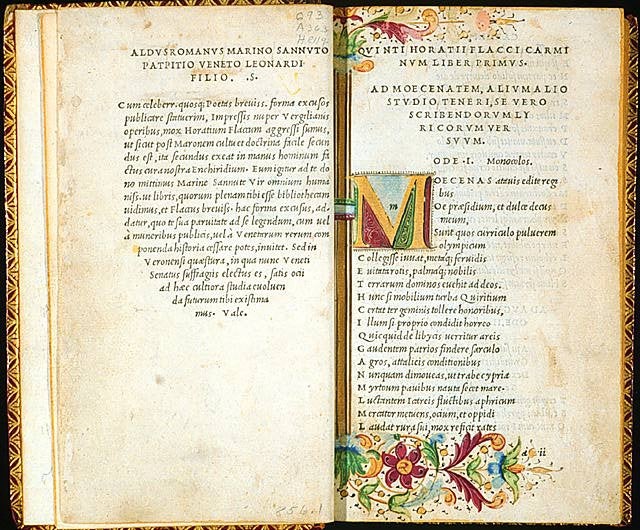 ALDVS ROMANVS MARINO SANNVTO
PATPITIO VENETO LEONARDI
FILIO. .S.
Cum celeberr. quosq; Poetas breuiss. forma excusos
publicare statuerim, Impressis nuper Vergilianis
operibus, mox Horatium Flaccum aggressi sumus,
ut sicut post Maronem cultu et doctrina facile secun
dus est, ita secundus exeat in manus hominum fa
ctus cura nostra Enchiridium. Eum igitur ad te do
no mittimus Marine Sannute Vir omnium huma
niss. ut libris, quorum plenam tibi esse bibliothecam
uidimus, et Flaccus breuiss. hac forma excusus, ad-
datur, quo te sua paruitate ad se legendum, cum uel
à muneribus publicis, uel à Venetarum rerum com
ponenda historia cessare potes, inuitet. Sed in
Veronensi quæstura, in qua nunc Veneti
Senatus suffragiis electus es, satis ocii
ad hæc cultiora studia euoluen
da futurum tibi existima
mus. Vale.
856.1
QVINTI HORATII FLACCI CARMI
NVM LIBER PRIMVS.
AD MOECENATEM, ALIVM ALIO
STVDIO TENERI, SE VERO
SCRIBENDORVM LY
RICORVM VER
SVVM.
ODE .I. Monocolos.
M
m
OECENAS atauis edite regi
bus
O et præsidium, et dulce decus
meum,
Sunt quos curriculo puluerem
olympicum
C ollegisse iuuat, metaq; feruidis
E uitata rotis, palmaq; nobilis
T errarum dominos euehit ad deos.
H unc si mobilium turba Quiritium
C ertat tergeminis tollere honoribus,
I llum si proprio condidit horreo
Q uicquid de libycis uerritur areis
G audentem patrios findere sarculo
A gros, attalicis conditionibus
N unquam dimoueas, ut trabe cypria
M yrtoum pauidus nauta secet mare.
L uctantem Icareis fluctibus aphricum
M ercator metuens, ocium, et oppidi
L audat rura sui, mox reficit rates
a ii